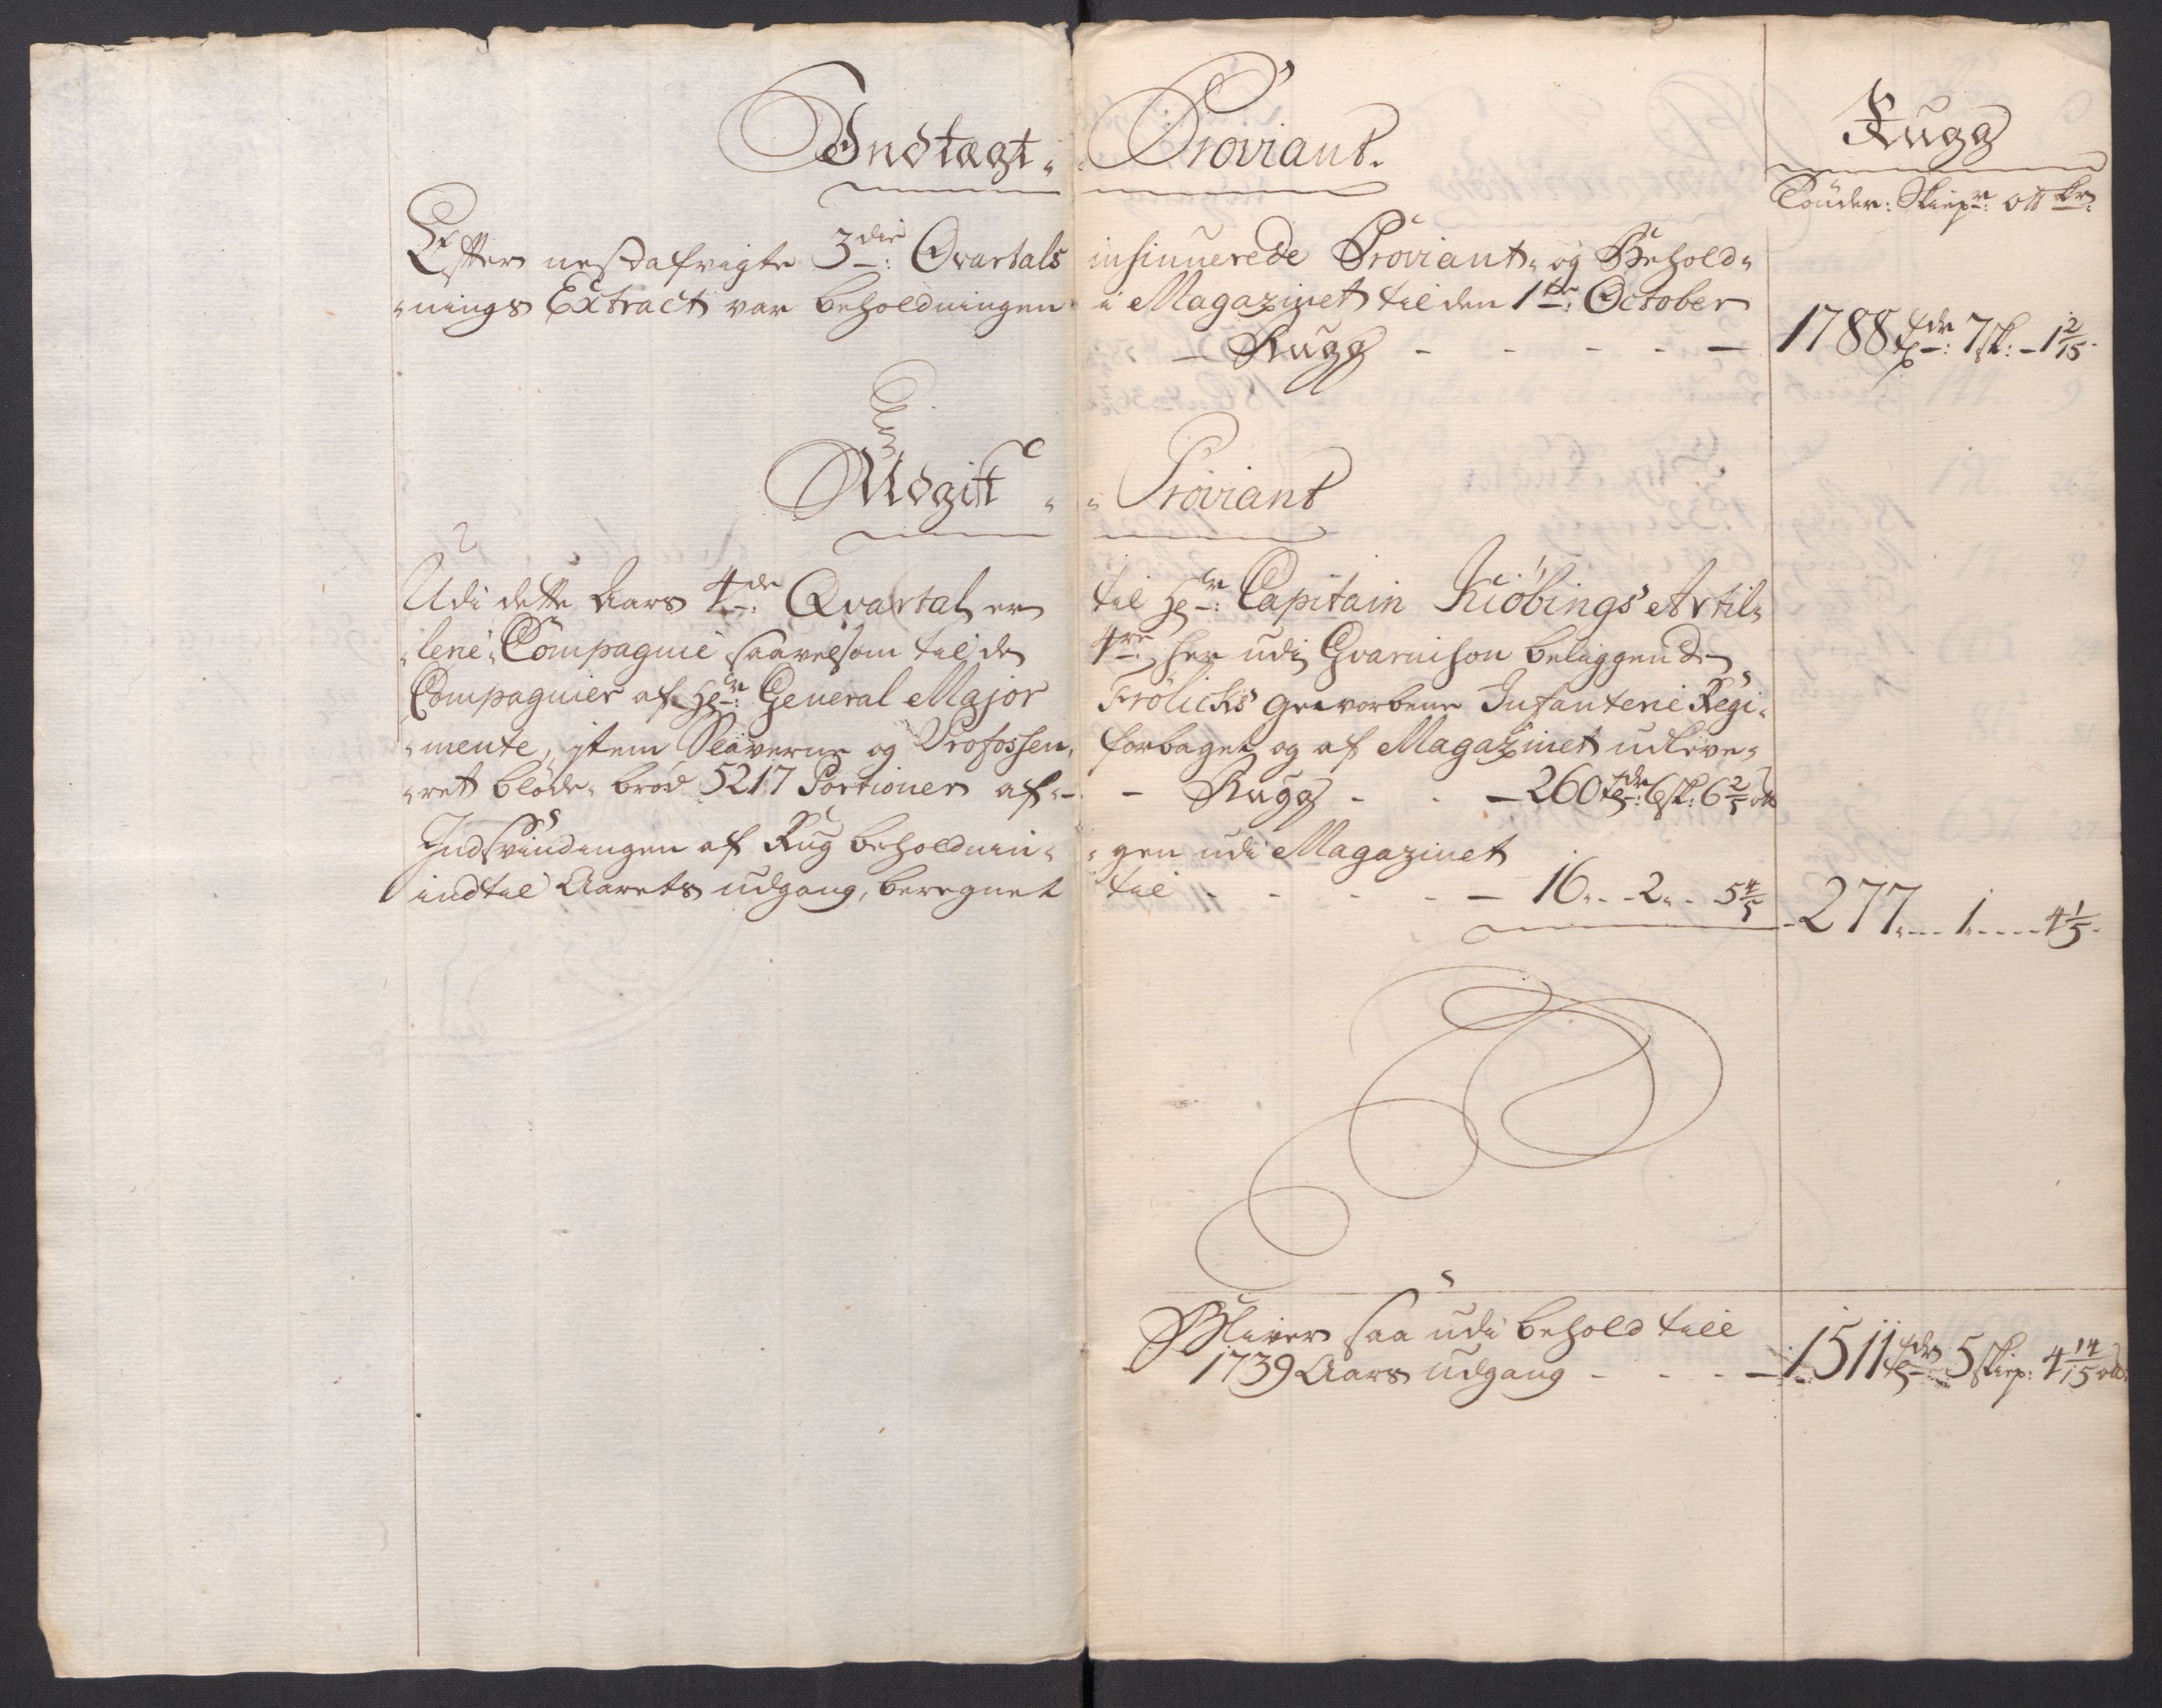 Indtægt - Proviant.
Rugg
Tönder: Skiepr: ottkr:
Efter nestafvigte 3die: Qvartals insinuerede Proviant- og Behold-
-nings Extract var beholdningen i Magazinet til den 1te: October
- Rugg - - - - - 1788 tdr: 7 sk: - 1 2/15.
Udgift - - Proviant
Udi dette Aars 4de: Qvartal er til Hr: Capitain Kiöbings Artil-
-lerie-Compagnie saavelsom til de 4re: her udi Gvarnison beliggende
Compagnier af Hr: General Major Frölichs gevorbene Infanterie Regi-
-mente, item Slaverne og Profossen, forbaget og af Magazinet udleve-
-ret blöde-bröd 5217 Portioner af - - Rugg - - - 260 tdr: 6 sk: 6 2/5 ott
Indsvindingen af Rug beholdnin- -gen udi Magazinet
indtil Aarets udgang, beregnet til - - - - - 16 - - 2 - - 5 4/5 - 277 - - - 1 - - - - 4 1/5.
Bliver saa udi behold till
1739 Aars udgang - - - - 1511 tdr: 5 skiep: 4 14/15 ott: